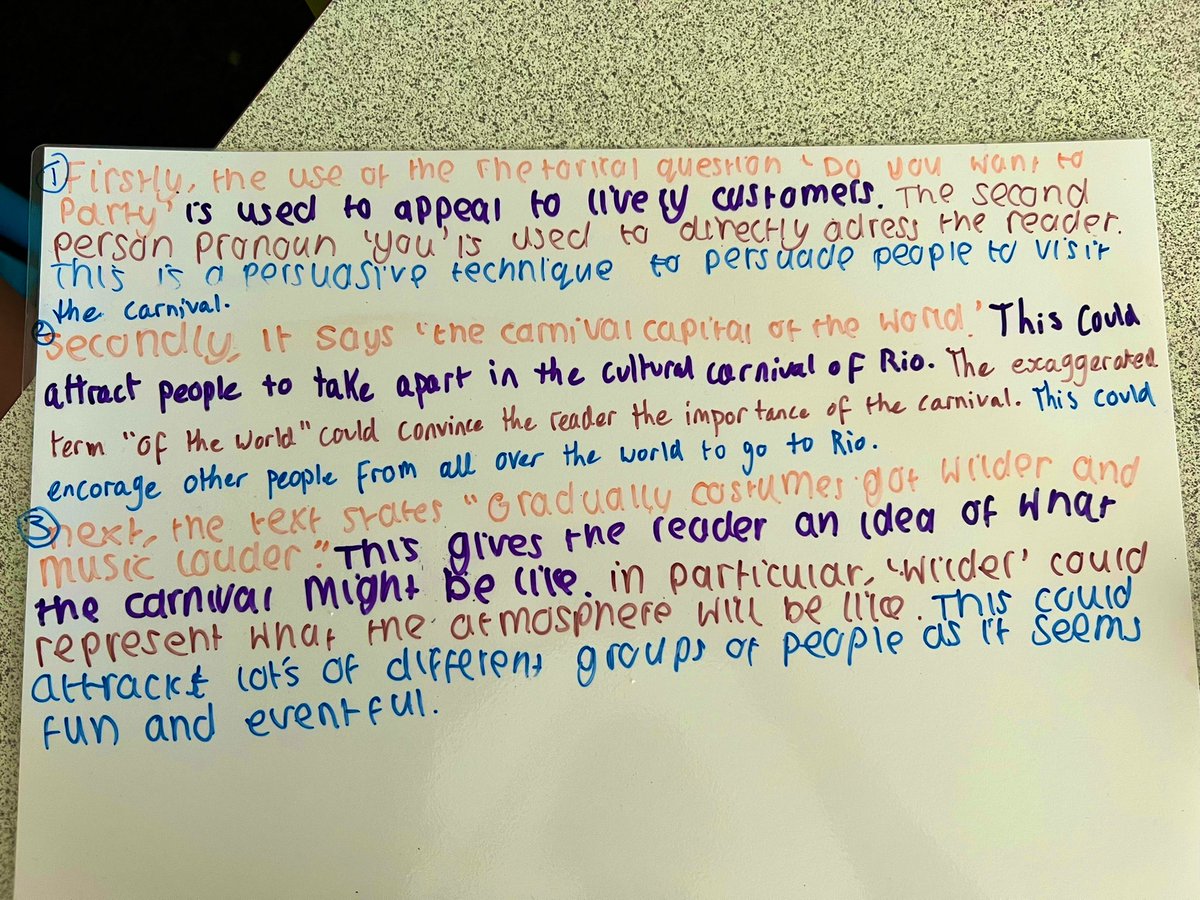 ① Firstly, the use of the rhetorical question 'Do you want to
Party' is used to appeal to lively customers. The second
person pronoun 'you' is used to directly adress the reader.
This is a persuasive technique to persuade people to visit
the carnival.
② secondly, it says 'the carnival capital of the world.' This could
attract people to take apart in the cultural carnival of Rio. The exaggerated
term "of the world" could convince the reader the importance of the carnival. This could
encorage other people from all over the world to go to Rio.
③ next, the text states "Gradually costumes got wilder and
music louder". This gives the reader an idea of what
the carnival might be like. in particular, 'wilder' could
represent what the atmosphere will be like. This could
attrackt lot's of different groups of people as it seems
fun and eventful.